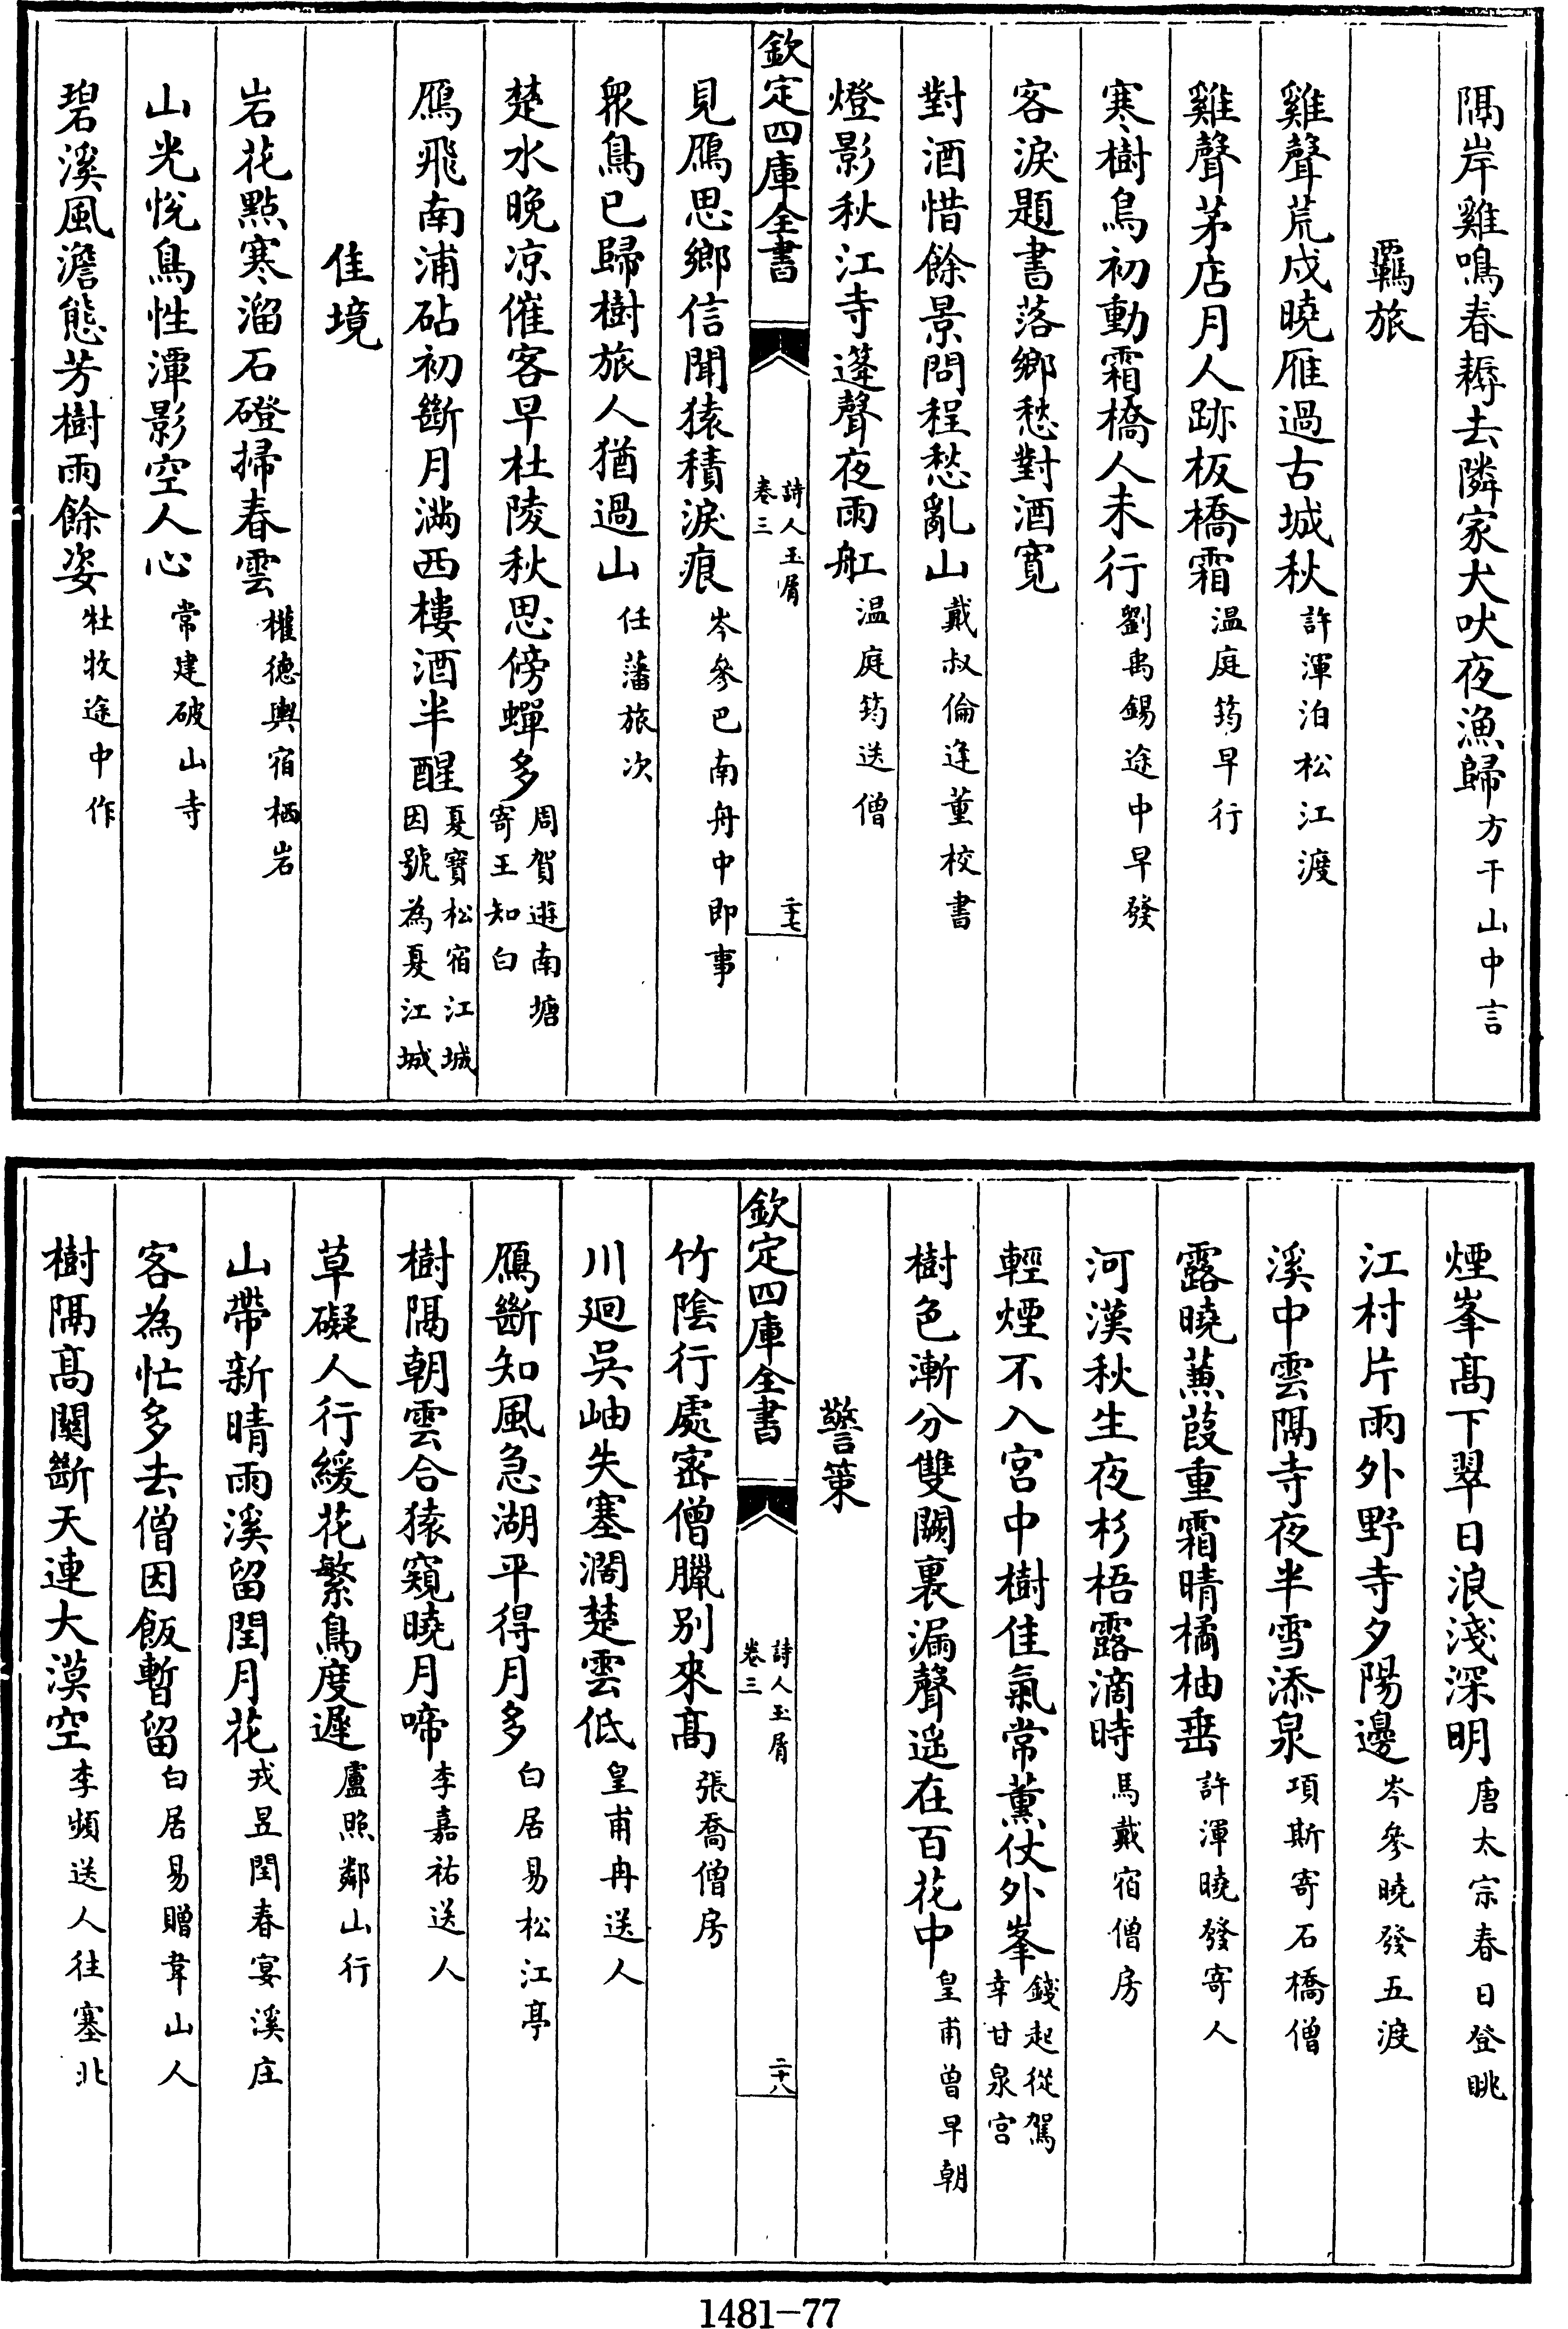 隔岸雞鳴春耨去隣家犬吠夜漁歸方干山中言
羈旅
雞聲荒戍曉雁過古城秋許渾泊松江渡
雞聲茅店月人跡板橋霜温庭筠早行
寒樹鳥初動霜橋人未行劉禹錫途中早發
客淚題書落鄉愁對酒寛
對酒惜餘景問程愁亂山戴叔倫逢董校書
燈影秋江寺蓬聲夜雨舡温庭筠送僧
欽定四庫全書
詩人玉屑
卷三
二十七
見鴈思鄉信聞猿積淚痕岑參巴南舟中即事
衆鳥已歸樹旅人猶過山任藩旅次
楚水晚凉催客早杜陵秋思傍蟬多周賀遊南塘寄王知白
鴈飛南浦砧初斷月滿西樓酒半醒夏寶松宿江城因號為夏江城
佳境
岩花點寒溜石磴掃春雲權德輿宿栖岩
山光悅鳥性潭影空人心常建破山寺
碧溪風澹態芳樹雨餘姿杜牧途中作
煙峯髙下翠日浪淺深明唐太宗春日登眺
江村片雨外野寺夕陽邊岑參曉發五渡
溪中雲隔寺夜半雪添泉項斯寄石橋僧
露曉蒹葭重霜晴橘柚垂許渾曉發寄人
河漢秋生夜杉梧露滴時馬戴宿僧房
輕煙不入宫中樹佳氣常薰仗外峯錢起從駕幸甘泉宫
樹色漸分雙闕裏漏聲遥在百花中皇甫曾早朝
警策
欽定四庫全書
詩人玉屑
卷三
二十八
竹陰行處宻僧臘别來髙張喬僧房
川廻吳岫失塞濶楚雲低皇甫冉送人
鴈斷知風急湖平得月多白居易松江亭
樹隔朝雲合猿窺曉月啼李嘉祐送人
草礙人行緩花繁鳥度遲盧照鄰山行
山帶新晴雨溪留閏月花戎昱閏春宴溪庄
客為忙多去僧因飯暫留白居易贈韋山人
樹隔髙關斷天連大漠空李頻送人往塞北
1481-77